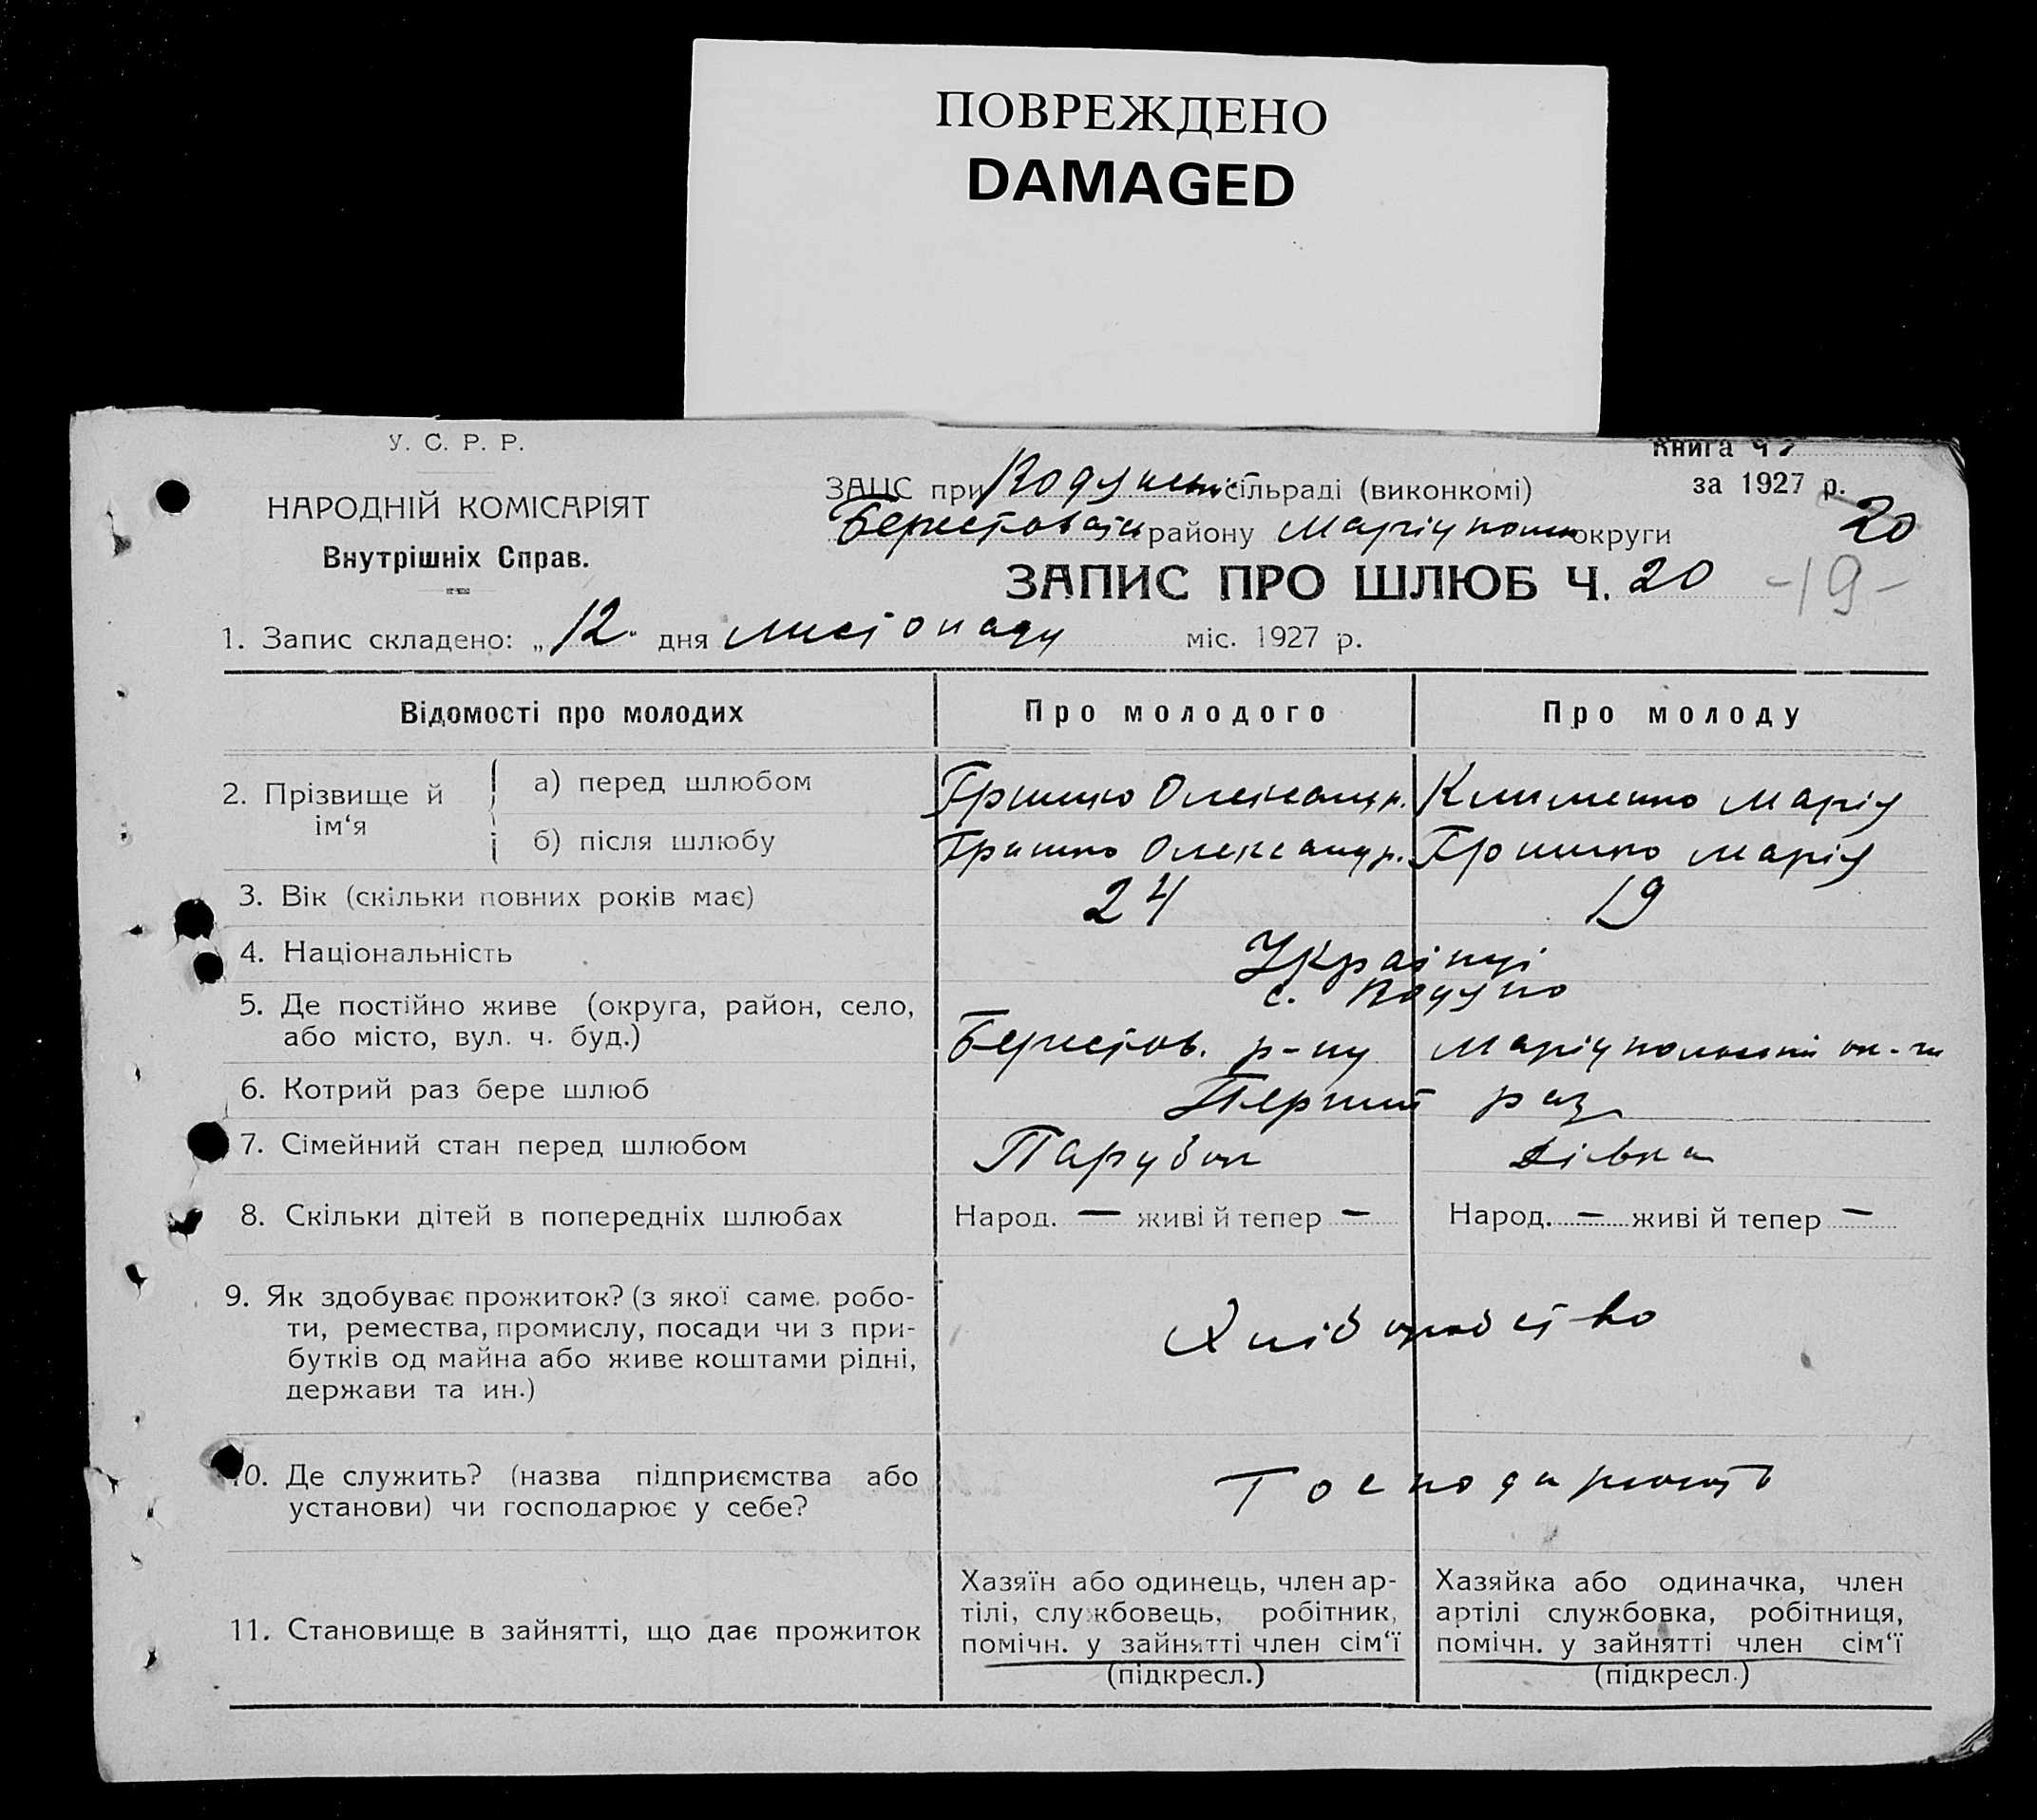 ПОВРЕЖДЕНО
DAMAGED
У. С. Р. Р.
НАРОДНІЙ КОМІСАРІЯТ
Внутрішніх Справ.
Книга ч
за 1927 р.
ЗАЦС при сільраді (виконкомі)
району округи
20
ЗАПИС ПРО ШЛЮБ Ч. 20 -19-
1. Запис складено: „12" дня листопаду міс. 1927 р.
Відомості про молодих Про молодого Про молоду
2. Прізвище й ім‘я
а) перед шлюбом Гришко Олександр. Клименко Марія
б) після шлюбу Гришко Олександр. Гришко Марія
3. Вік (скільки повних років має) 24 19
4. Національність Українці
5. Де постійно живе (округа, район, село, с.
або місто, вул. ч. буд.) Берестов. р-ну Маріупольської ок-ги
6. Котрий раз бере шлюб Перший раз
7. Сімейний стан перед шлюбом Парубок Дівка
8. Скільки дітей в попередніх шлюбах Народ. — живі й тепер — Народ. — живі й тепер —
9. Як здобуває прожиток? (з якої саме робо-
ти, ремества, промислу, посади чи з при-
бутків од майна або живе коштами рідні,
держави та ин.)
Хліборобство
10. Де служить? (назва підприємства або
установи) чи господарює у себе?
Господарюють
11. Становище в зайнятті, що дає прожиток
Хазяїн або одинець, член ар-
тілі, службовець, робітник,
помічн. у зайнятті член сім‘ї
(підкресл.)
Хазяйка або одиначка, член
артілі службовка, робітниця,
помічн. у зайнятті член сім‘ї
(підкресл.)